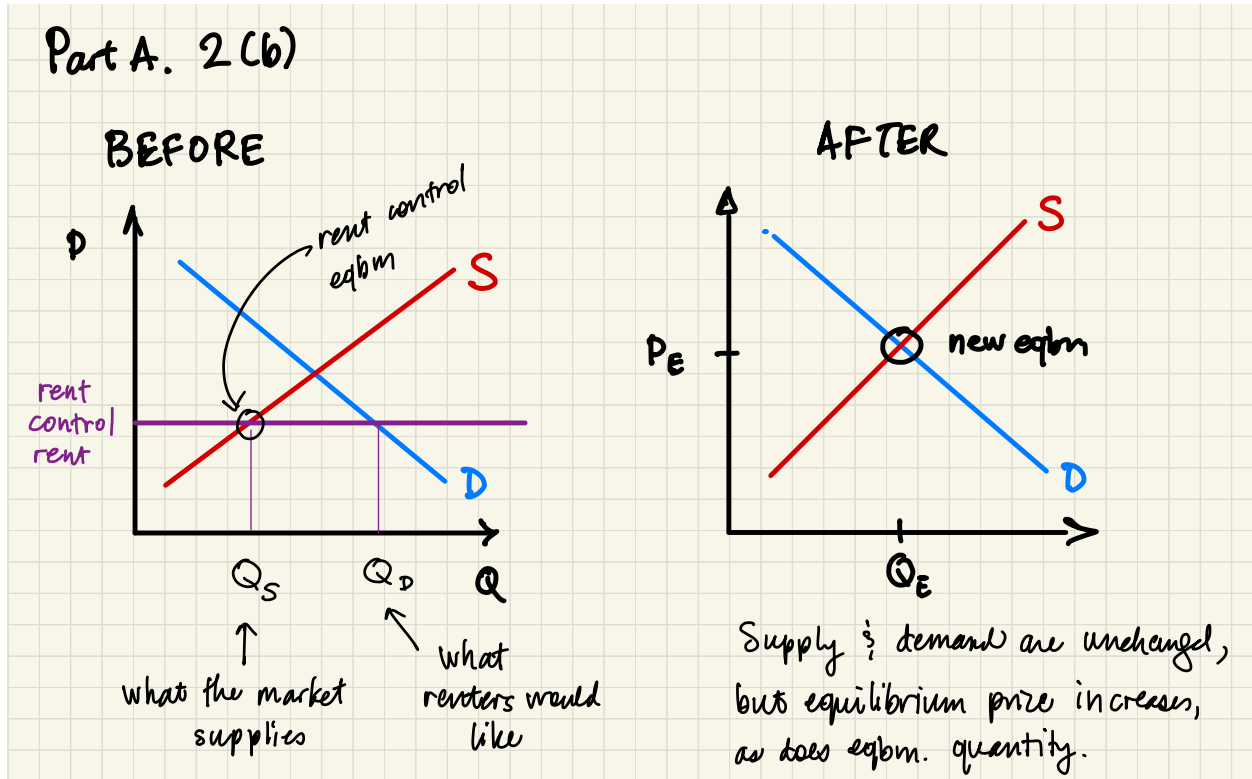 Part A. 2(b)
BEFORE
P
rent control
eqbm
S
rent
control
rent
D
Q_S
Q_D
Q
what the market
supplies
what
renters would
like
AFTER
S
P_E
new eqbm
D
Q_E
Supply & demand are unchanged,
but equilibrium price increases,
as does eqbm. quantity.